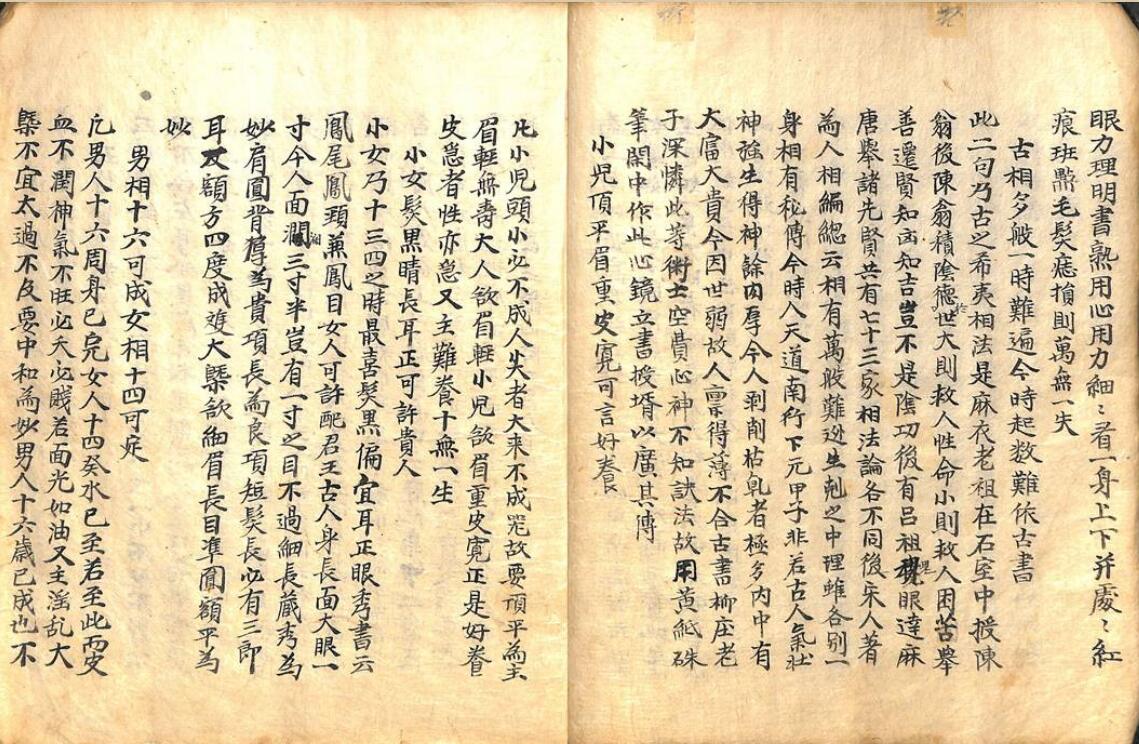 眼力理明書熟用心用力細〻看一身上下并處〻紅
痕班㸃毛髮痣損則萬無一失
古相多般一時難遍今時起数難依古書
此二句乃古之希夷相法是麻衣老祖在石室中授陳
翁後陳翁積陰德於世大則救人性命小則救人困苦舉
善遷賢知凶知吉豈不是陰功後有吕祖眼達麻
唐舉諸先賢共有七十三家相法論各不同後宋人著
為人相編總云相有萬般難逃生剋之中理雖各別一
身相有秘傳今時入天道南行下元甲子非若古人氣壯
神強生得神餘肉厚今人剥削枯乹者極多内中有
大富大貴今因世弱故人禀得薄不合古書柳庄老
子深憐此等術士空費心神不知訣法故用黄紙硃
筆閑中作此心鏡立書授壻以廣其傳
小児頂平眉重皮寛可言好養
凡小児頭小必不成人失者大来不成器故要頂平為主
眉輕無壽大人欲眉輕小児欲眉重皮寛正是好養
皮急者性亦急又主難養十無一生
小女髮黒睛長耳正可許貴人
小女乃十三四之時最喜髮黒偏宜耳正眼秀書云
鳳尾鳳頸兼鳳目女人可許配君王古人身長面大眼一
寸今人面濶三寸半豈有一寸之目不過細長藏秀為
妙肩圓背厚為貴項長為良項短髮長必有三即
耳及額方四度成雙大槩欲細眉長目凖圓額平為
妙
男相十六可成女相十四可定
凢男人十六周身已完女人十四癸水已至若至此而皮
血不潤神氣不旺必夭必賤若面光如油又主滛乱大
槩不宜太過不及要中和為妙男人十六歲已成也不